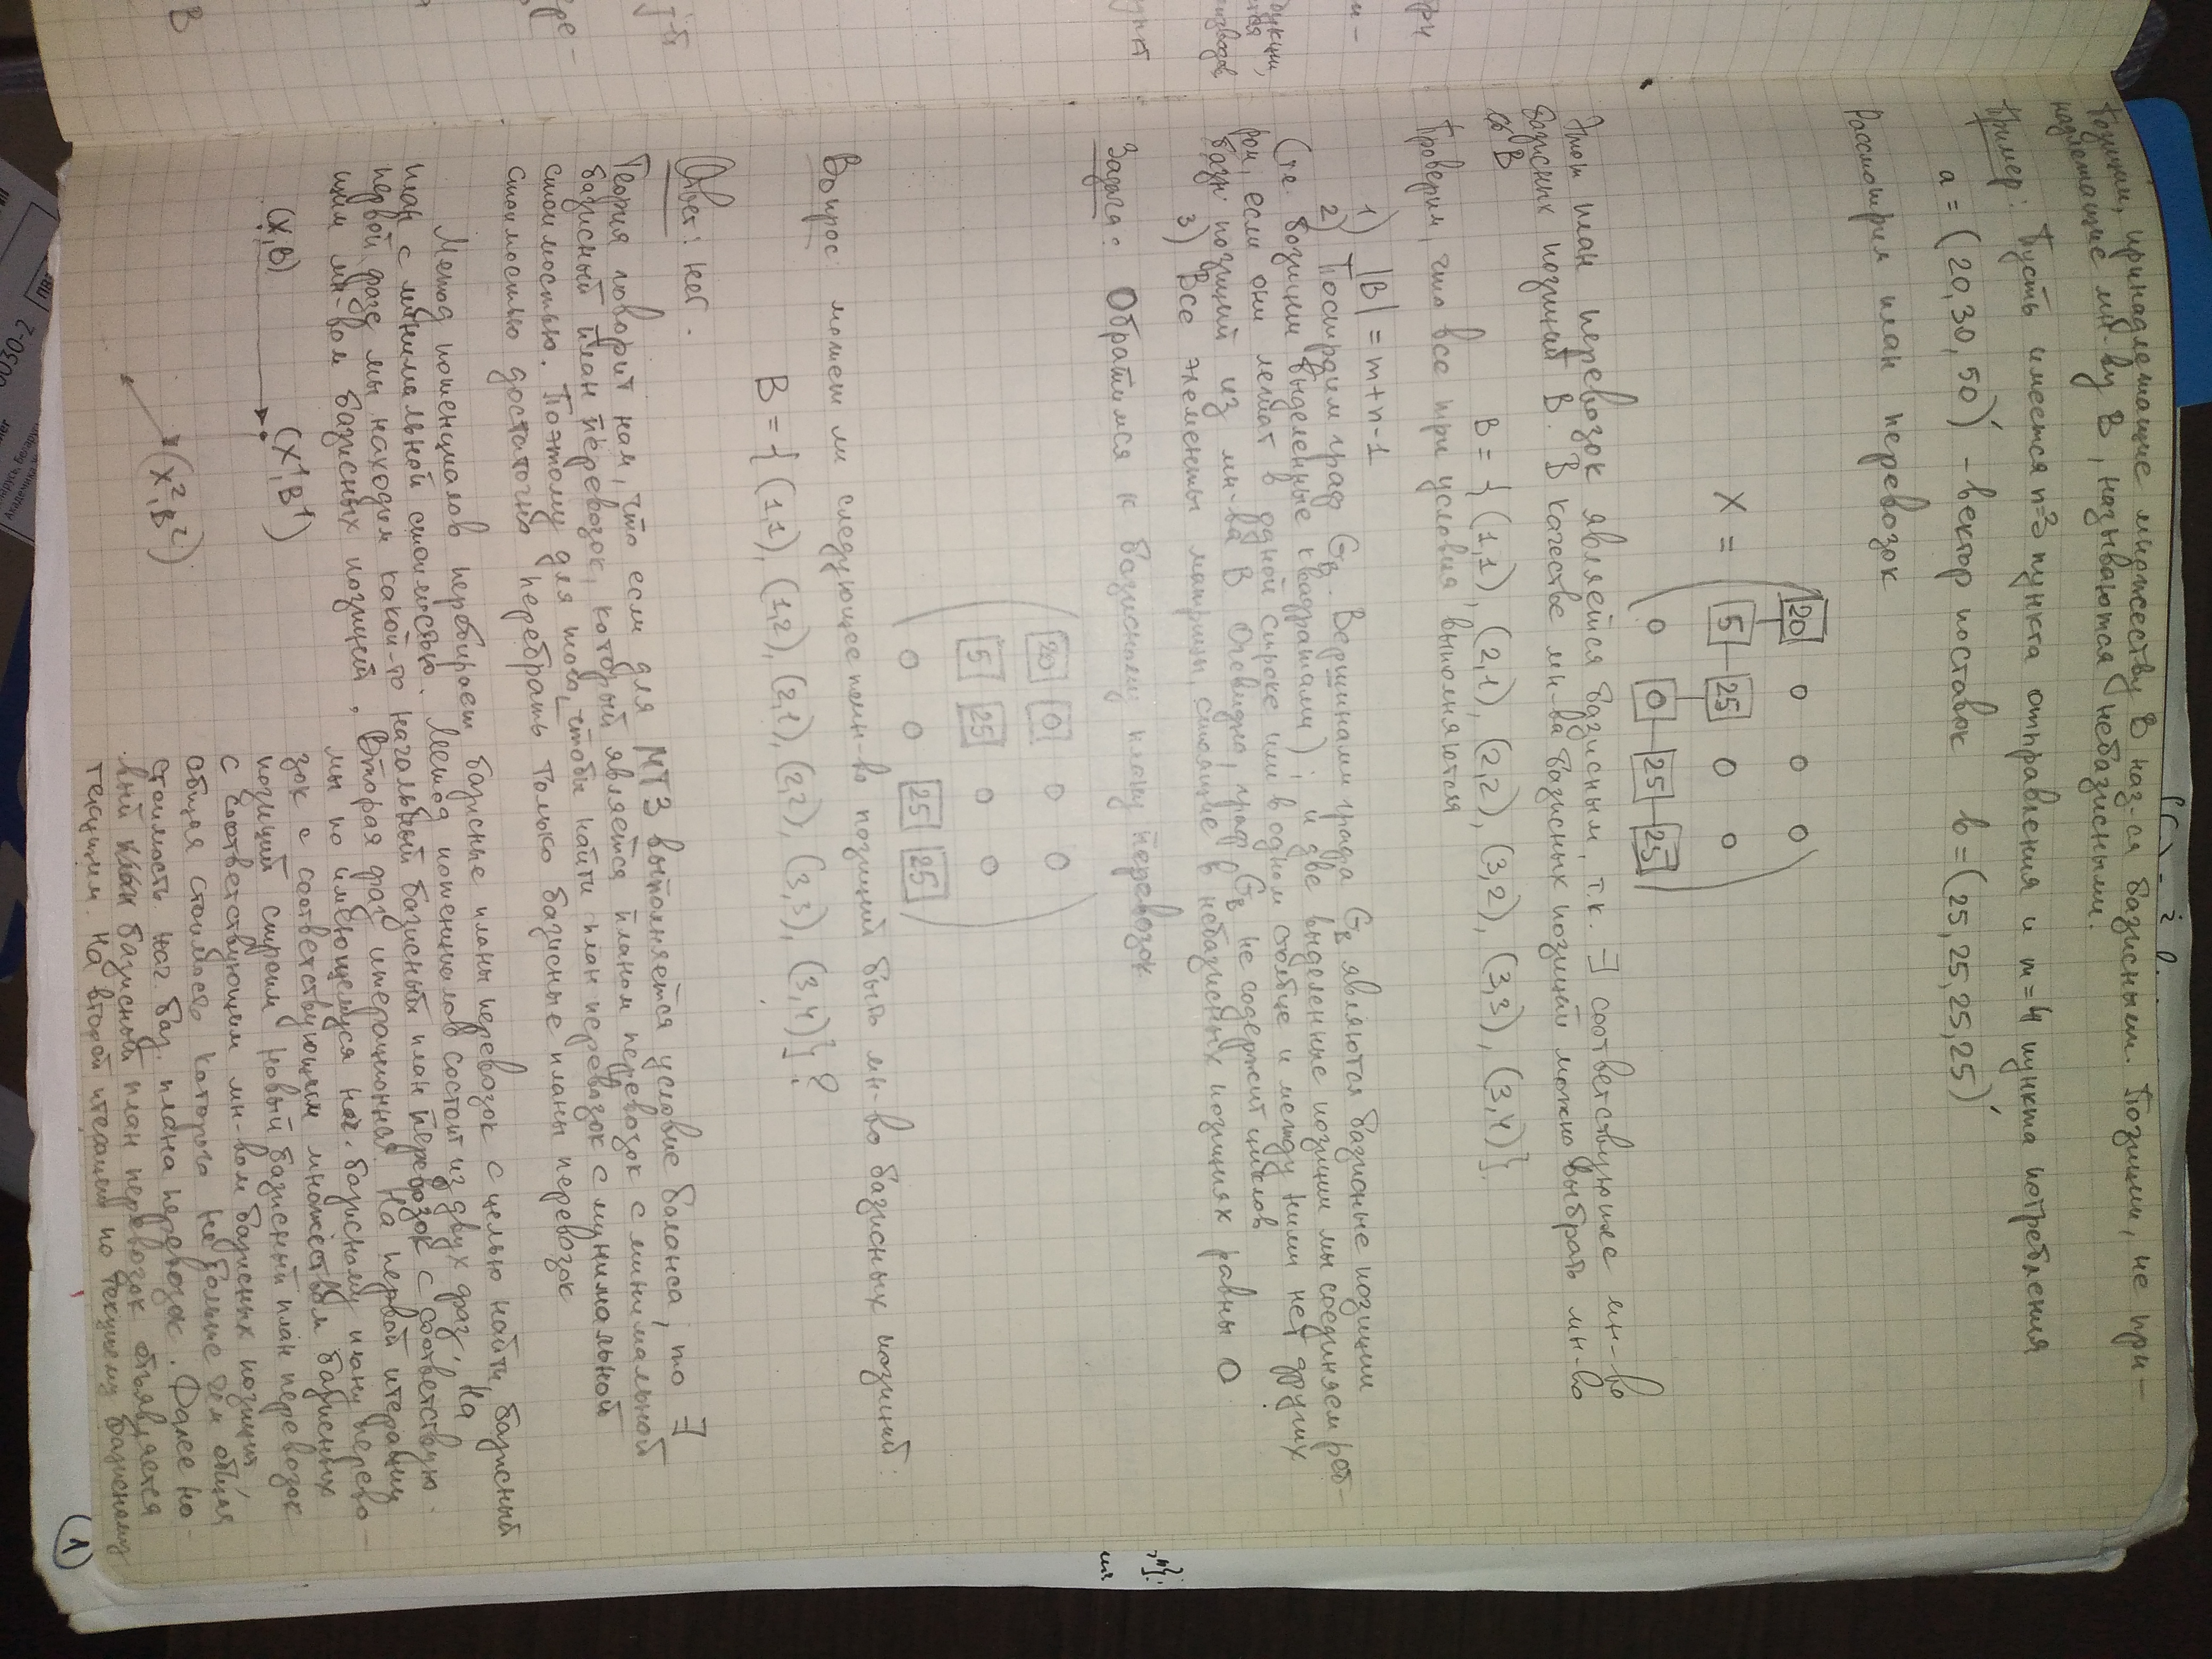 Позиции, принадлежащие множеству B наз-ся базисными. Позиции, не при-
надлежащие мн-ву B, называются небазисными.
Пример: Пусть имеется n=3 пункта отправления и m=4 пункта потребления
a = (20, 30, 50)' - вектор поставок b = (25, 25, 25, 25)'
Рассмотрим план перевозок
20 0 0 0
X = 5 25 0 0
0 0 25 25
Этот план перевозок является базисным, т.к. ∃ соответствующее мн-во
базисных позиций B. В качестве мн-ва базисных позиций можно выбрать мн-во
B
B = {(1,1), (2,1), (2,2), (3,2), (3,3), (3,4)}.
Проверим, что все три условия выполняются
1) |B| = m+n-1
2) Построим граф G_B. Вершинами графа G_B являются базисные позиции
(т.е. позиции выделенные квадратами); и две выделенные позиции мы соединяем реб-
ром, если они лежат в одной строке или в одном столбце и между ними нет других
базн. позиций из мн-ва B. Очевидно, граф G_B не содержит циклов
3) Все элементы матрицы, стоящие в небазисных позициях равны 0
Задача: Обратимся к базисному плану перевозок
20 0 0 0
5 25 0 0
0 0 25 25
Вопрос: может ли следующее мн-во позиций быть мн-во базисных позиций:
B = {(1,1), (1,2), (2,1), (2,2), (3,3), (3,4)}?
Ответ: нет.
Теория говорит нам, что если для МТЗ выполняется условие баланса, то ∃
базисный план перевозок, который является планом перевозок с минимальной
стоимостью. Поэтому для того, чтобы найти план перевозок с минимальной
стоимостью достаточно перебрать только базисные планы перевозок
Метод потенциалов перебирает базисные планы перевозок с целью найти базисный
план с минимальной стоимостью. Метод потенциалов состоит из двух фаз. На
первой фазе мы находим какой-то начальный базисный план перевозок с соответствую-
щим мн-вом базисных позиций. Вторая фаза итерационная. На первой итерации
мы по имеющемуся нач. базисному плану перево-
зок с соответствующим множеством базисных
позиций строим новый базисный план перевозок
с соответствующим мн-вом базисных позиций,
общая стоимость которого не больше чем общая
стоимость нач. баз. плана перевозок. Далее но-
вый базисный план перевозок объявляется
текущим. На второй итерации по текущему базисному
(X, B)
(X¹, B¹)
(X², B²)
(1)